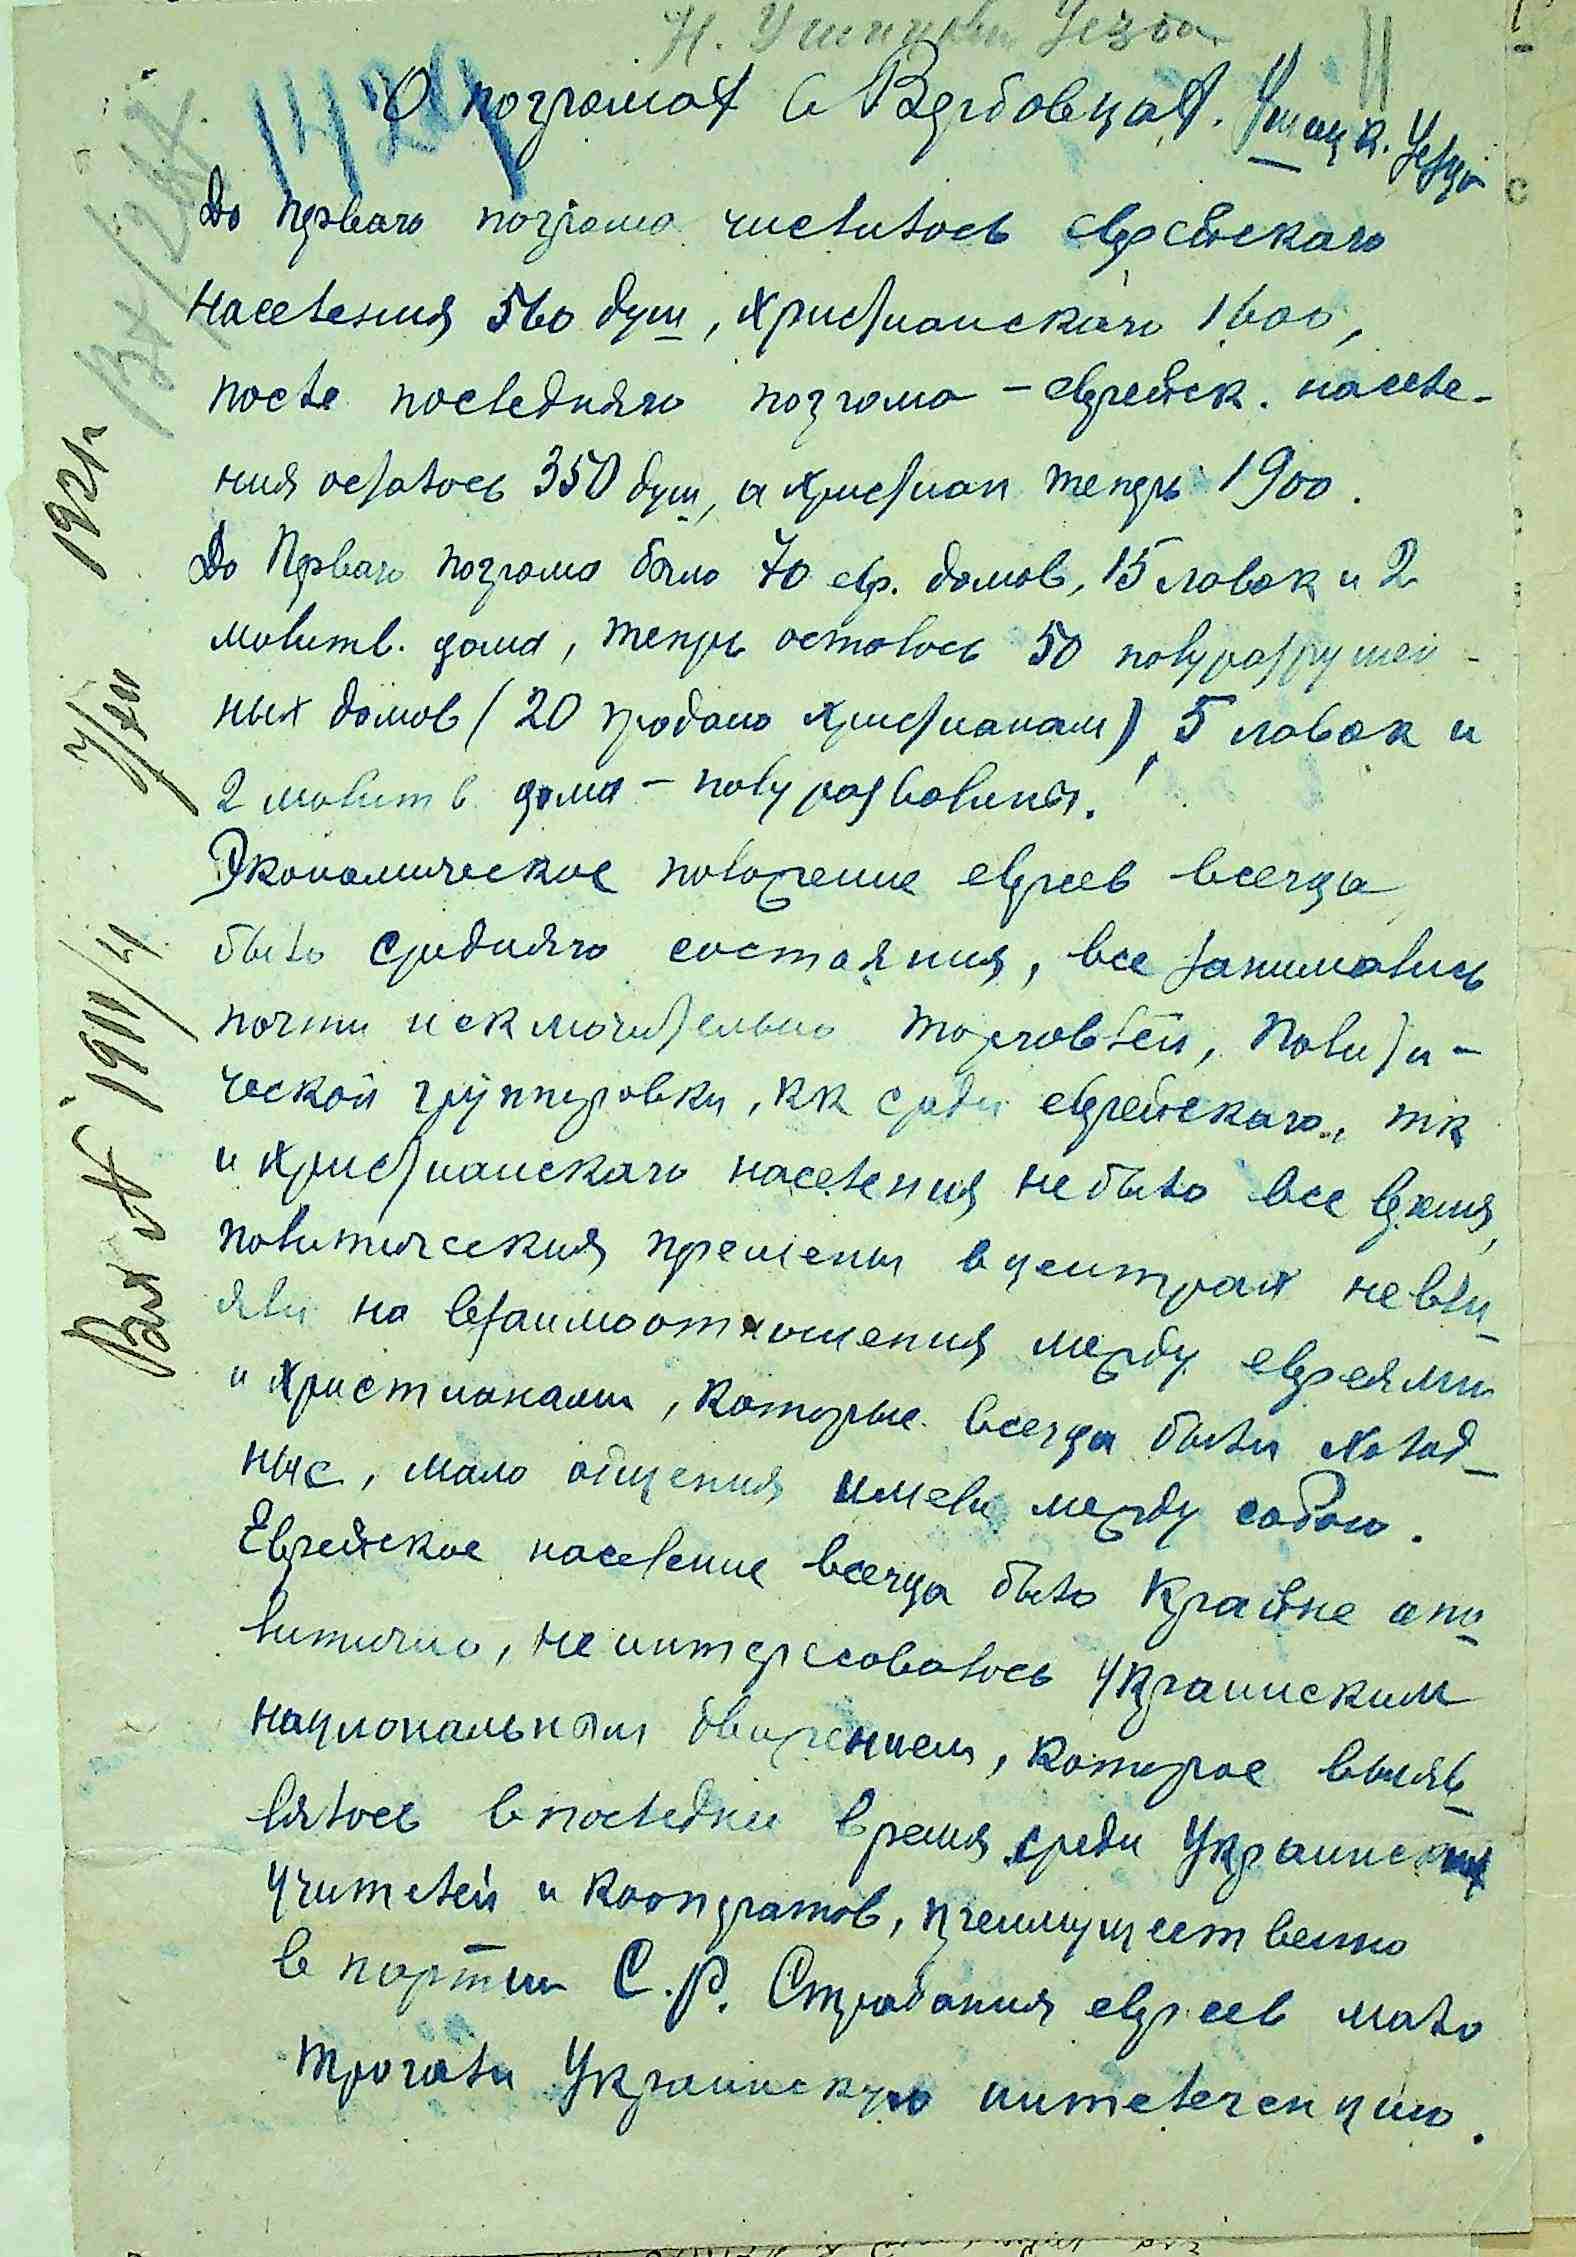 Н. Ушицкий Уезда
1424
О погромах в Вербовцах. Ушицк. Уезда
До перваго погрома числилось еврейскаго
населения 560 душ, христианскаго 1600,
после последняго погрома – еврейск. населе-
ния осталось 350 душ, а христиан теперь 1900.
До перваго погрома было 70 евр. домов, 15 лавок и 2
молитв. дома, теперь осталось 50 полуразрушен-
ных домов (20 продано христианам), 5 лавок и
2 молитв дома – полуразвалины.
Экономическое положение евреев всегда
было средняго состояния, все занимались
почти исключительно торговлей, Полити-
ческой группировки, кк среди еврейскаго, тк
и христианскаго населения не было все время,
политическия премены в центрах не вли-
яли на взаимоотношения между евреями
и христианами, которые всегда были холод-
ные, мало общения имели между собою.
Еврейское население всегда было крайне апо-
литично, не интересовалось украинским
национальным движением, которое выяв-
лялось в последнее время среди украинских
учителей и кооператов, преимущественно
в партии С.Р. Страдания евреев мало
трогали Украинскую интелегенцию.
Вх № 1911/4 7/XII 1921г